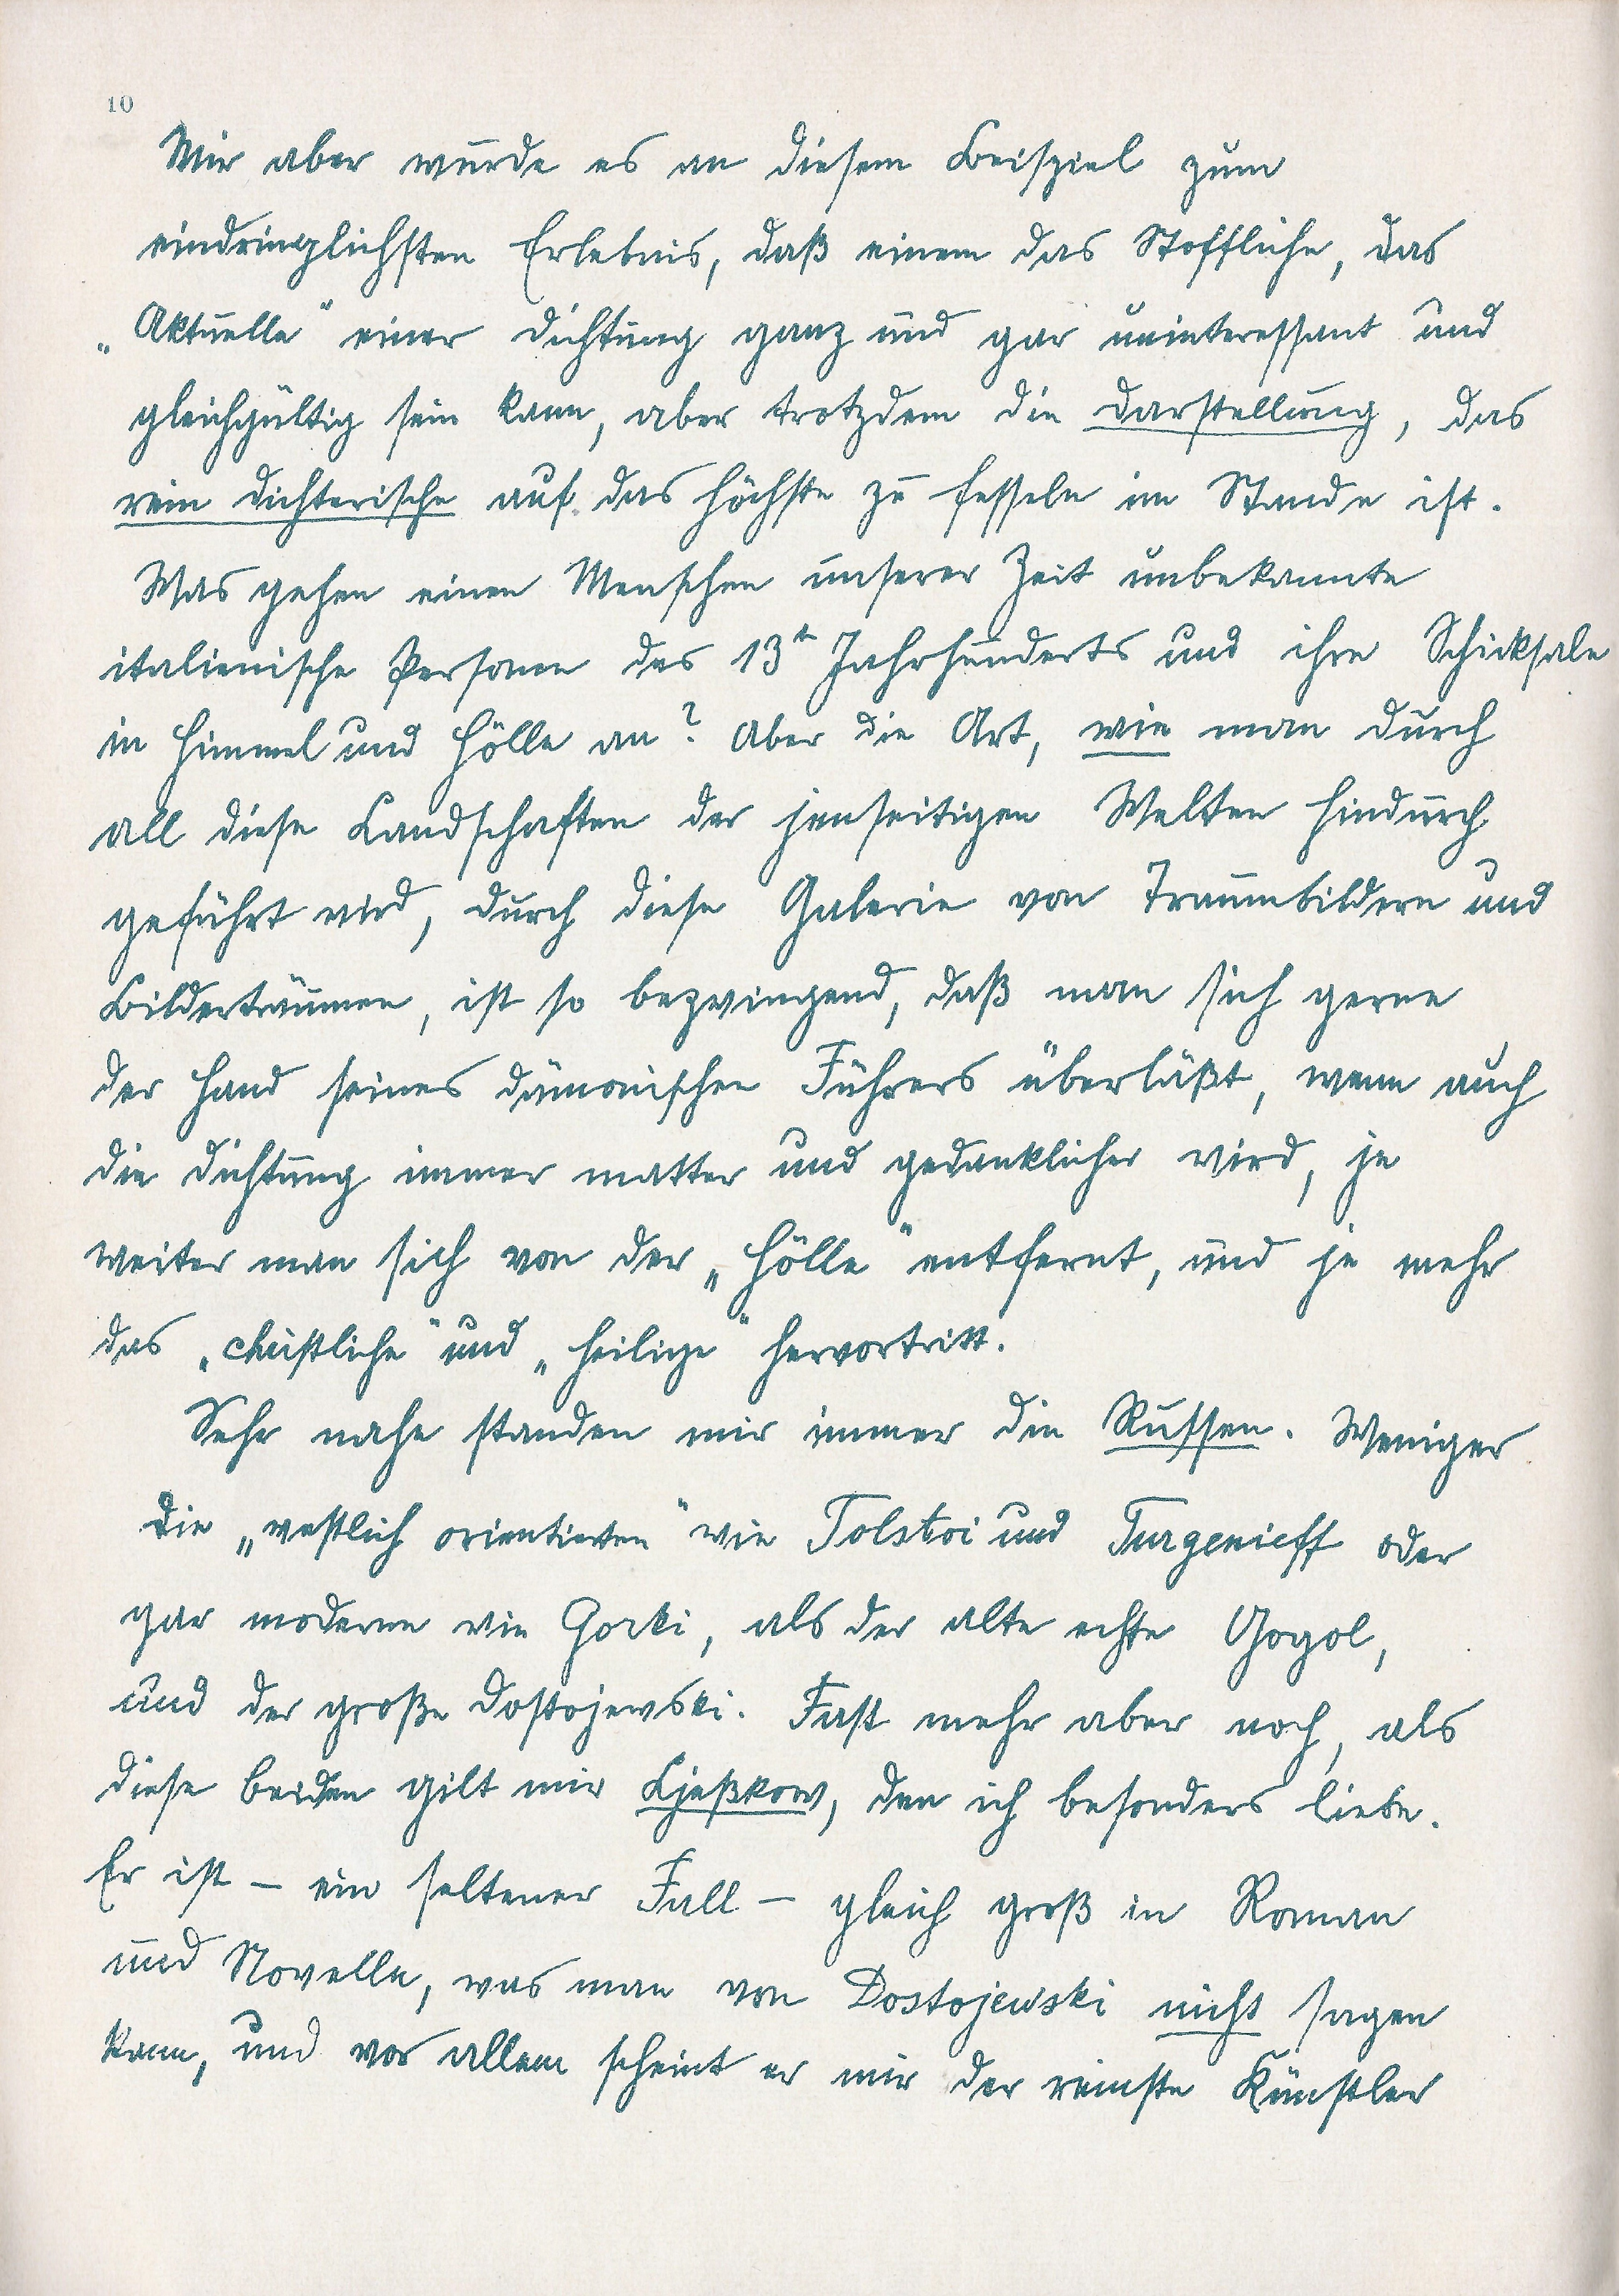 10
Mir aber wurde es an diesem Beispiel zum
eindringlichsten Erlebnis, daß einem das Stoffliche, das
„Aktuelle“ einer Dichtung ganz und gar uninteressant und
gleichgültig sein kann, aber trotzdem die Darstellung, das
rein Dichterische auf das höchste zu fesseln im Stande ist.
Was gehen einen Menschen unserer Zeit unbekannte
italienische Personen des 13ten Jahrhunderts und ihre Schicksale
in Himmel und Hölle an? Aber die Art, wie man durch
all diese Landschaften der jenseitigen Welten hindurch
geführt wird, durch diese Galerie von Traumbildern und
Bilderträumen, ist so bezwingend, daß man sich gerne
der Hand seines dämonischen Führers überläßt, wenn auch
die Dichtung immer matter und gedanklicher wird, je
weiter man sich von der „Hölle“ entfernt, und je mehr
das „christliche“ und „heilige“ hervortritt.
Sehr nahe standen mir immer die Russen. Weniger
die „westlich orientierten“ wie Tolstoi und Turgenieff oder
gar moderne wie Gorki, als der alte echte Gogol,
und der große Dostojewski. Fast mehr aber noch, als
diese beiden gilt mir Ljeßkow, den ich besonders liebe.
Er ist – ein seltener Fall – gleich groß in Roman
und Novelle, was man von Dostojewski nicht sagen
kann, und vor allem scheint er mir der reinste Künstler